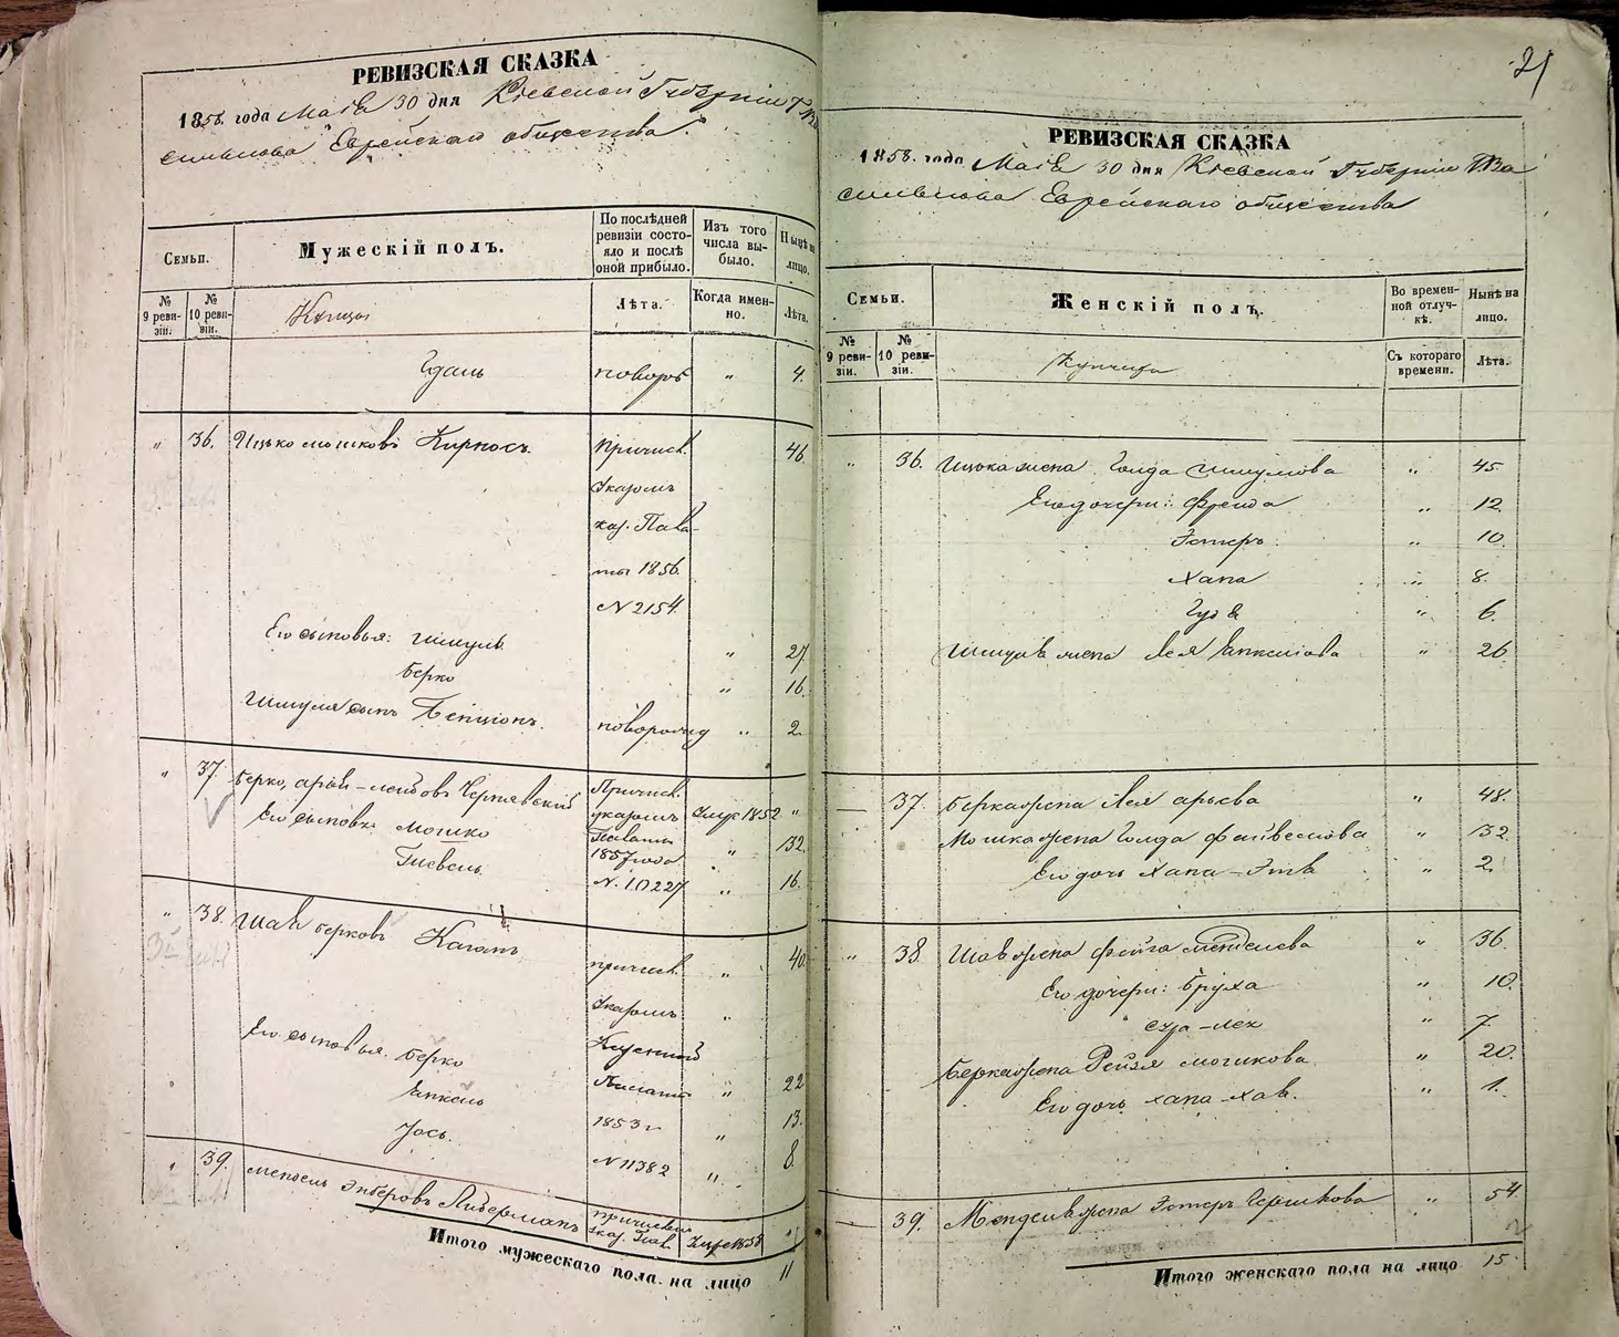 РЕВИЗСКАЯ СКАЗКА
1858. года Маія 30 дня Кіевской Губерніи Г. Ва
силькова Еврейскаго общества.
Семьи.
Мужескій полъ.
По послѣдней ревизіи состо-
яло и послѣ оной прибыло.
Изъ того числа вы-
было.
Нынѣ на лицо.
№ 9 реви-
зіи.
№ 10 реви-
зіи.
Купцы
Лѣта.
Когда имен-
но.
Лѣта.
Гдаль новорож " 4.
" 36. Ицько Мошковъ Кирносъ. Причисл. 46.
Указомъ
каз. Пала-
ты 1856.
N 2154.
Его сыновья: Шмуль " 27
Берко " 16.
Шмуля сынъ Бенціонъ. новорожд " 2.
" 37. Берко, Арій-Лейбовъ Чернявскій Причисл. Умер 1852 "
Его сыновья Мошко указомъ Палаты " 32.
Гневель 1857 года
N. 10227 " 16.
" 38. Шая Берковъ Каганъ 40
причисл. "
Указомъ "
Казенной
Его сыновья. Берко Палаты " 22
Янкель 1853 г 13.
Іось. " 8.
N 11382 "
" 39. Мендель Либерманъ причисленъ указ. Пал. Умре 1858 "
Итого мужескаго пола на лицо 11
21
РЕВИЗСКАЯ СКАЗКА
1858. года Маія 30 дня Кіевской Губерніи Г. Ва
силькова Еврейскаго общества
Семьи.
Женскій полъ.
Во времен-
ной отлуч-
кѣ.
Нынѣ на лицо.
№ 9 реви-
зіи.
№ 10 реви-
зіи.
Купчихи
Съ котораго времени.
Лѣта.
" 36. Ицька жена Голда Шмулова " 45
Его дочери: Фрейда " 12.
Эстеръ " 10.
Хана " 8.
" 6.
Шмуля жена Лея Янкелова " 26.
— 37. Берка жена Лея Арьева " 48.
Мошка жена Голда Файвелова " 32
Его дочь Хана-Этя " 2.
" 38. Шая жена Фейга Менделева " 36.
Его дочери: Бруха " 10.
Сура-Лея " 7.
Берка жена Рейзя Мошкова " 20.
Его дочь Хана-Хая. " 1.
— 39. Менделя жена Эстеръ Гершкова " 54.
Итого женскаго пола на лицо 15.